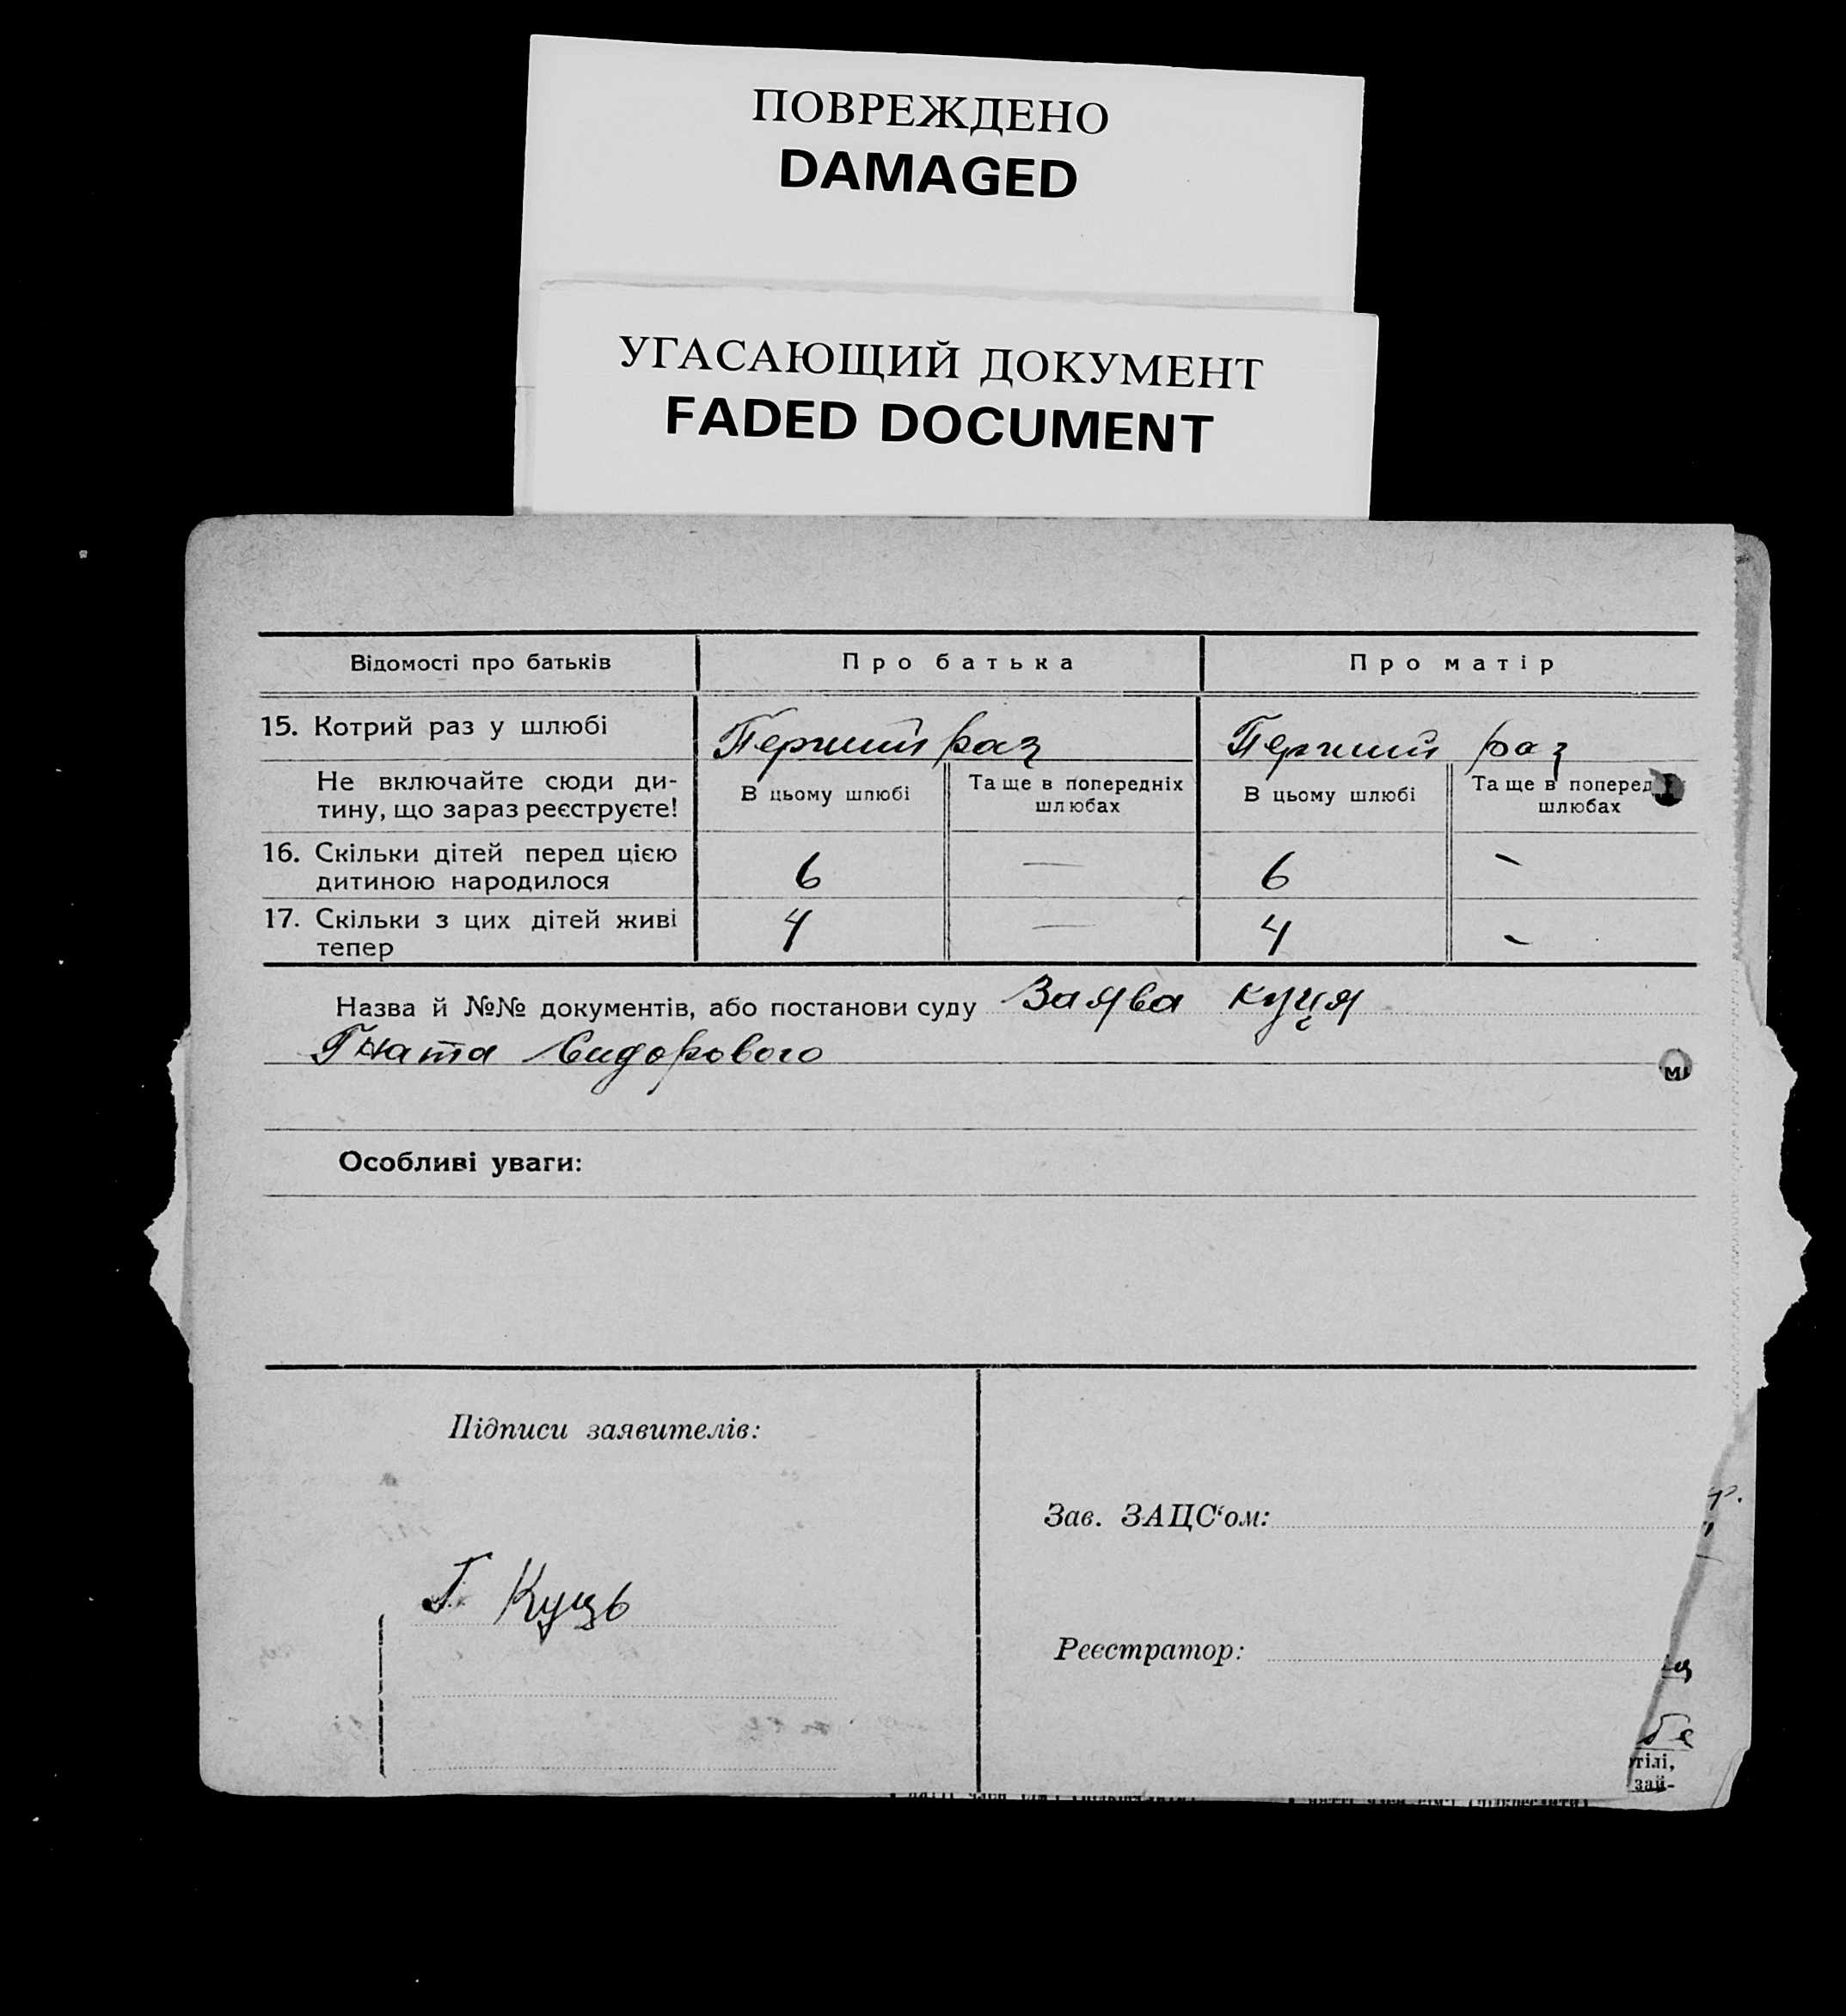 ПОВРЕЖДЕНО
DAMAGED
УГАСАЮЩИЙ ДОКУМЕНТ
FADED DOCUMENT
Відомості про батьків Про батька Про матір
15. Котрий раз у шлюбі Перший раз Перший раз
Не включайте сюди ди-
тину, що зараз реєструєте!
В цьому шлюбі Та ще в попередніх
шлюбах
В цьому шлюбі Та ще в поперед
шлюбах
16. Скільки дітей перед цією
дитиною народилося 6 — 6 -
17. Скільки з цих дітей живі
тепер 4 — 4 -
Назва й №№ документів, або постанови суду Заява Куця
Гната Сидорового
Особливі уваги:
Підписи заявителів:
Зав. ЗАЦС‘ом:
Г. Куць
Реєстратор:
тілі,
зай-